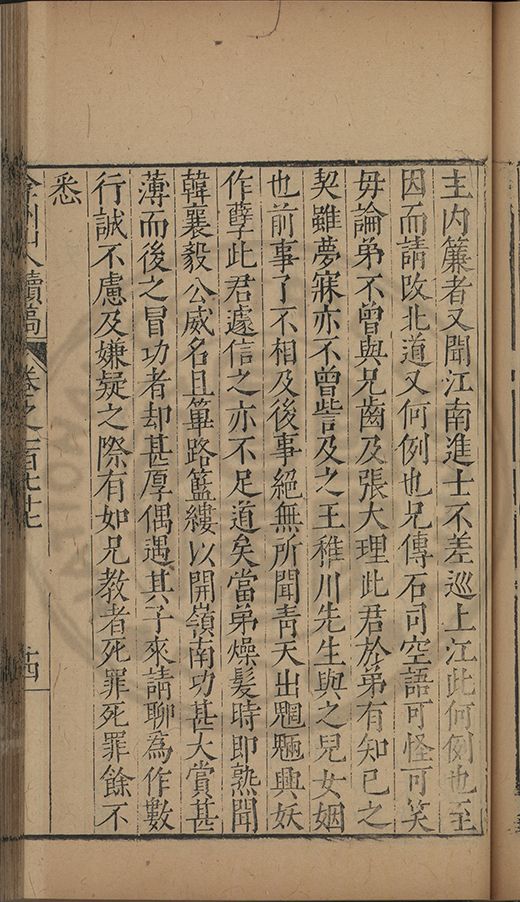 主内簾者又聞江南進士不差巡上江此何例也至
因而請改北道又何例也兄傳石司空語可怪可笑
毋論弟不曾與兄齒及張大理此君於弟有知已之
契雖夢寐亦不曾訾及之王稚川先生與之兒女姻
也前事了不相及後事絕無所聞青天出魍魎興妖
作孽此君遽信之亦不足道矣當弟燥髮時即熟聞
韓襄毅公威名且篳路籃縷以開嶺南功甚大賞甚
薄而後之冒功者却甚厚偶遇其子來請聊為作數
行誠不慮及嫌疑之際有如兄教者死罪死罪餘不
悉
弇州山人續稿 卷之一百七十七 十四